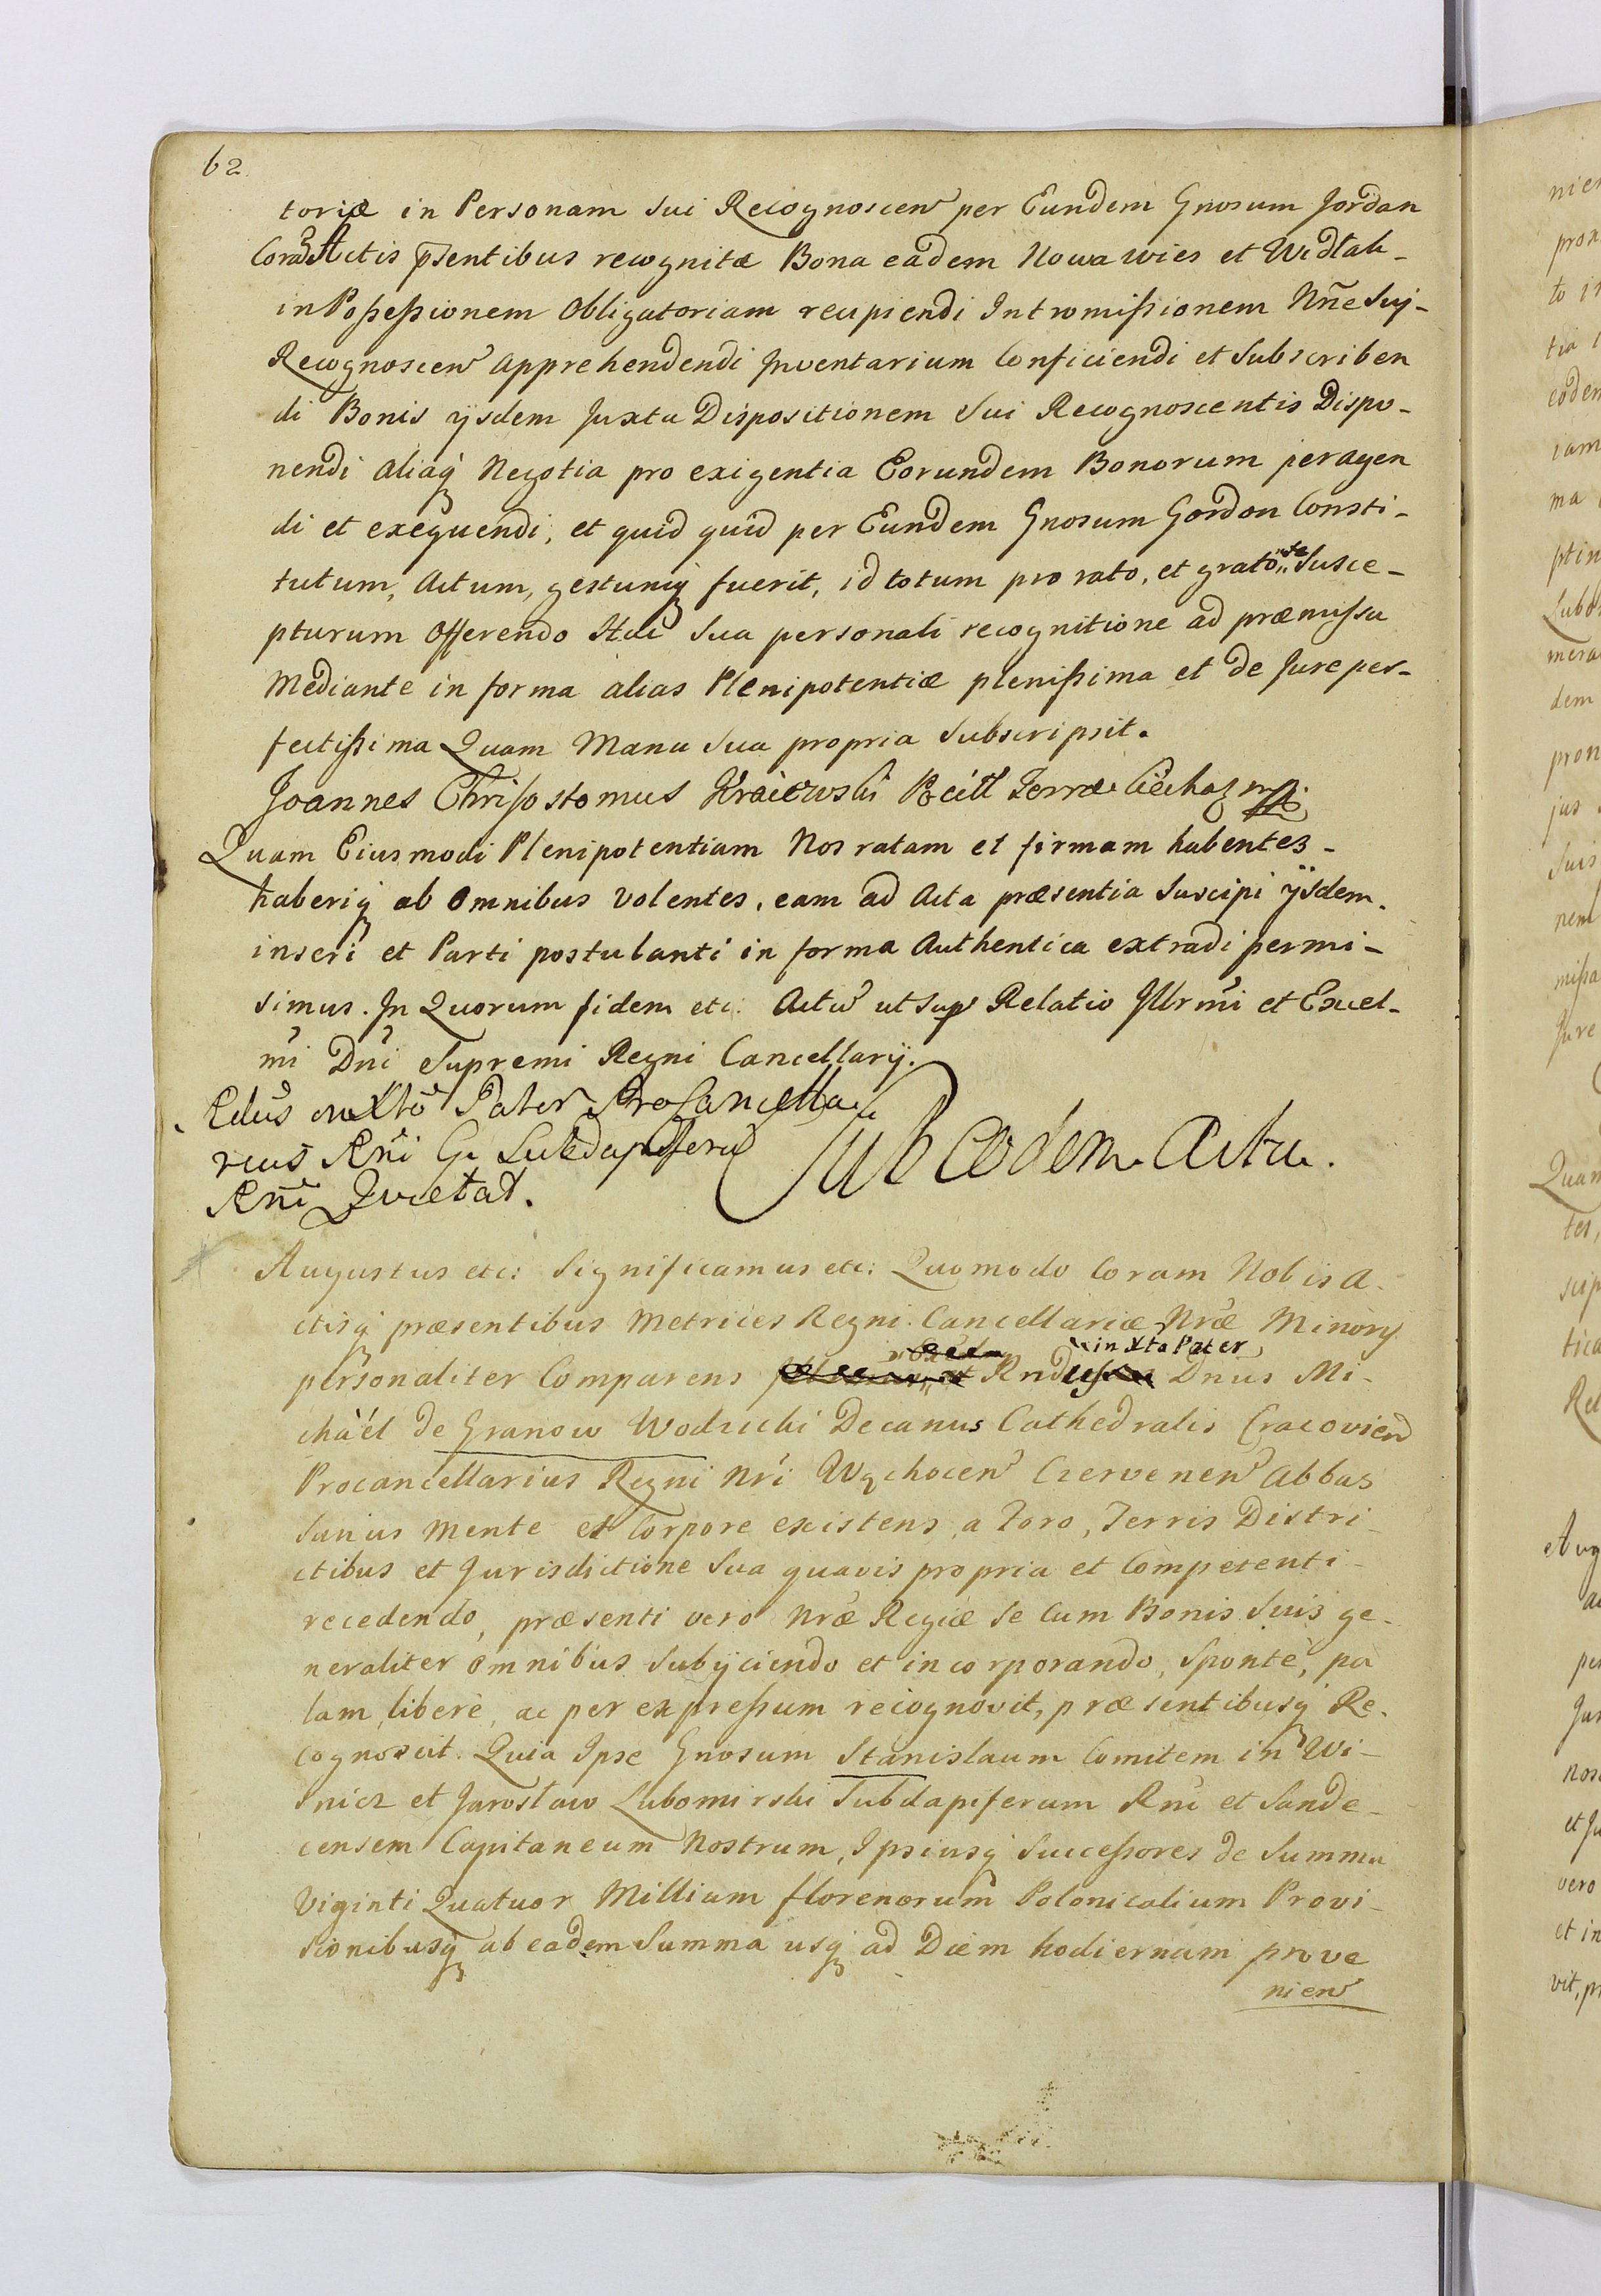 62
toriæ in Personam Sui Recognoscen per Eundem Gnosum Jordan
Coram Actis p̄sentibus recognitæ Bona eadem Nowa wies et
in Poſseſsionem Obligatoriam recipiendi Intromiſsionem Nñe Suj-
Recognoscen apprehendendi Inventarium Conficiendi et Subscriben
di Bonis ijsdem Juxta Dispositionem Sui Recognoscentis Dispo-
nendi aliaq́ Negotia pro exigentia Eorundem Bonorum peragen
di et exequendi, et quid quid per Eundem Gnosum Gordon Consti-
tutum, actum, gestumq́ fuerit, id totum pro rato, et grato se Susce-
pturum Offerendo Hac Sua personali recognitione ad præmiſsa
Mediante in forma alias Plenipotentiæ pleniſsima et de Jure per-
fectiſsima Quam Manu Sua propria Subscripsit.
Joannes Chriſostomus Kraiewski Terræ Ciechaz mpp.
Quam Eiusmodi Plenipotentiam Nos ratam et firmam habentes-
haberiq́ ab Omnibus Volentes, eam ad Acta præsentia Suscipi ijsdem.
inseri et Parti postulanti in forma Authentica extradi permi-
simus. In Quorum fidem etc: Actũ ut sup Relatio Illrmi et Excel-
mi Dni Supremi Regni Cancellarij.
Rdus in Xto Pater ProCancella
rius Rni Gr Subdapiferũ
Rni Quietat.
Sub eodem Actu.
Augustus etc: Significamus etc: Quomodo Coram Nobis A-
ctisq́ præsentibus Metrices Regni Cancellariæ Nræ Minory
personaliter Comparens Rndus in Xto Pater Dnus Mi-
chàél de Granow Wodzicki Decanus Cathedralis Cracovien
Procancellarius Regni Nri Wąchocen Czervenen Abbas
Sanus Mente et Corpore existens, a Foro, Terris Distri-
ctibus et Jurisdictione Sua quavis propria et Competenti-
recedendo, præsenti vero Nræ Regiæ Se Cum Bonis Suis ge-
neraliter Omnibus Subijciendo et incorporando, Sponte, pa
lam, liberè, ac per expreſsum recognovit, præsentibusq́ Re-
cognoscit. Quia Ipse Gnosum Stanislaum Comitem in Wi-
snicz et Jarosław Lubomirski Subdapiferum Rni et Sande-
censem Capitaneum Nostrum, Ipsiusq́ Succeſsores de Summa
Viginti Quatuor Millium florenorum Polonicalium Provi-
sionibusq́ ab eadem Summa usq́ ad Diem hodiernam prove
nien